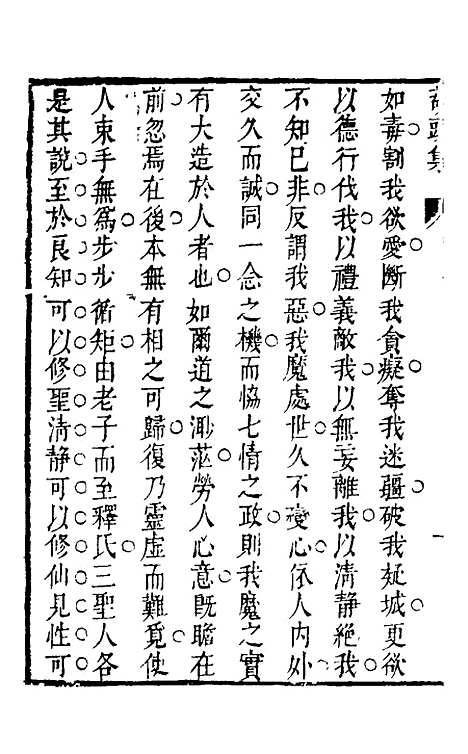 如毒割我欲愛斷我貪癡奪我迷疆破我疑城更欲
以德行伐我以禮義敵我以無妄離我以清静絕我
不知巳非反謂我惡我魔處世久不變心依人内外
交久而誠同一念之機而恊七情之政則我魔之實
有大造於人者也如爾道之渺茫勞人心意既瞻在
前忽焉在後本無有相之可歸復乃靈虚而難覓使
人束手無爲步步循矩由老子而至釋氏三聖人各
是其說至於良知可以修聖清静可以修仙見性可